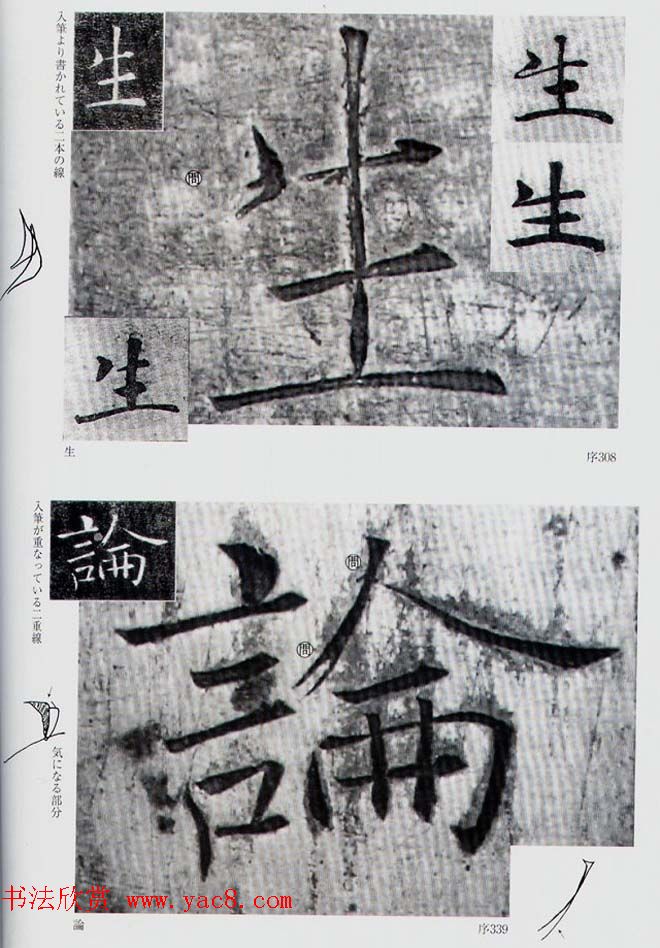 生
生
生
生
生
問
入筆より書かれている二本の線
生
序308
論
論
問
問
入筆が重なっている二重線
気になる部分
論
序339
书法欣赏 www.yac8.com